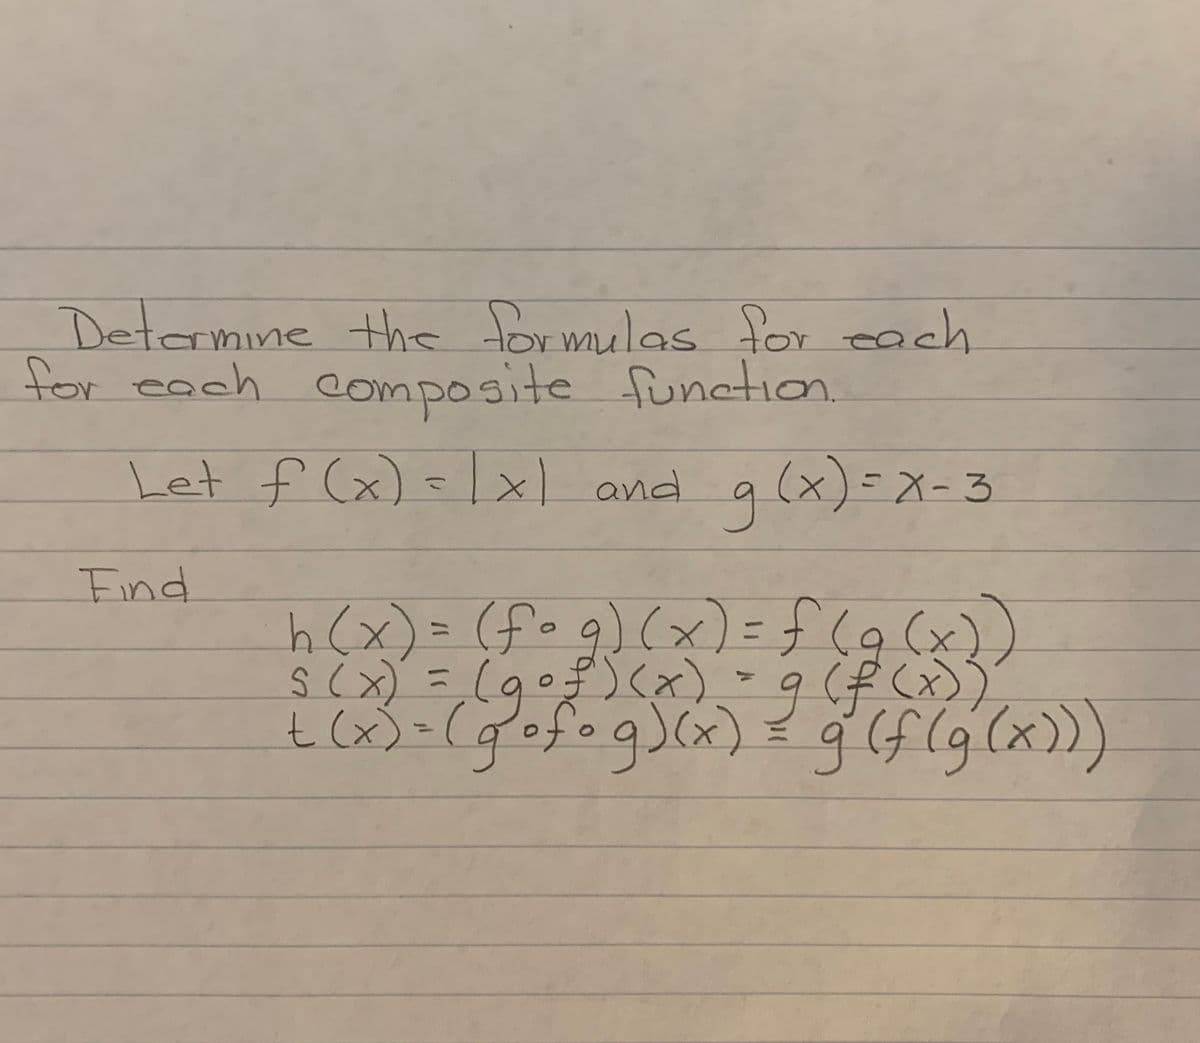 Determine the formulas for each
for each composite function.
Let f(x) = |x| and g(x) = x-3
Find
h(x) = (f∘g)(x) = f(g(x))
s(x) = (g∘f)(x) = g(f(x))
t(x) = (g∘f∘g)(x) = g(f(g(x)))